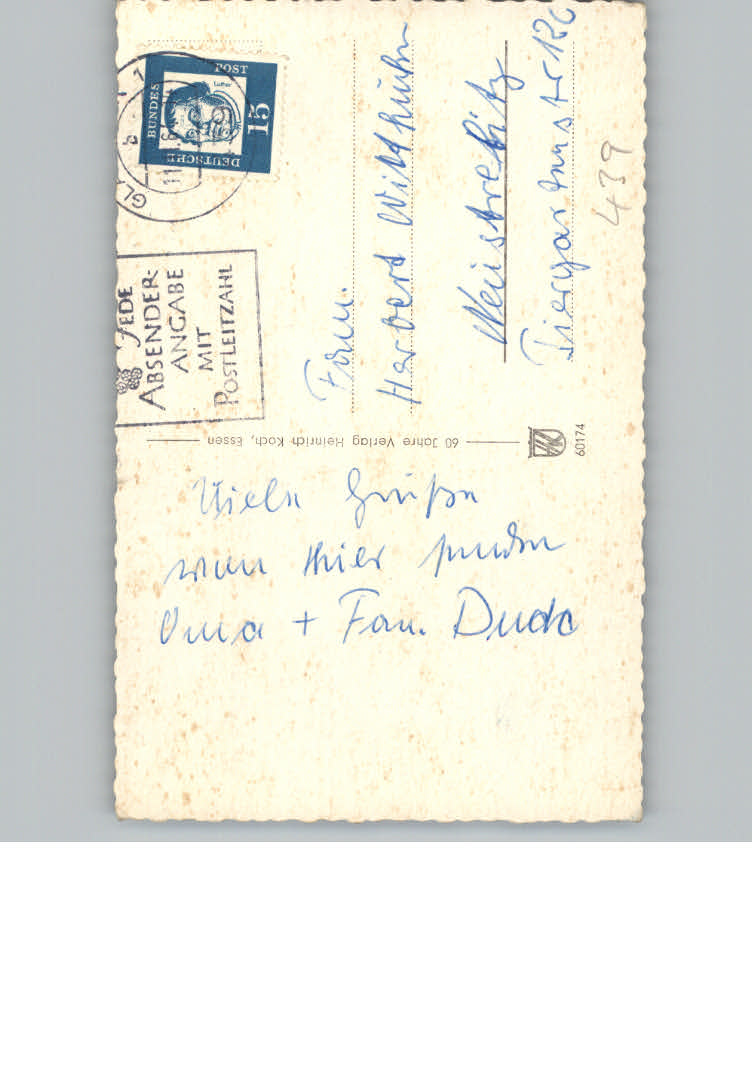 DEUTSCHE
BUNDES
POST
15
Luther
GL
11
JEDE
ABSENDER-
ANGABE
MIT
POSTLEITZAHL
Fam.
Herbert Witthuhn
Neustrelitz
Tiergartenstr 12c
439
60 Jahre Verlag Heinrich Koch, Essen
60174
Viele Grüße
von hier senden
Oma + Fam. Duda